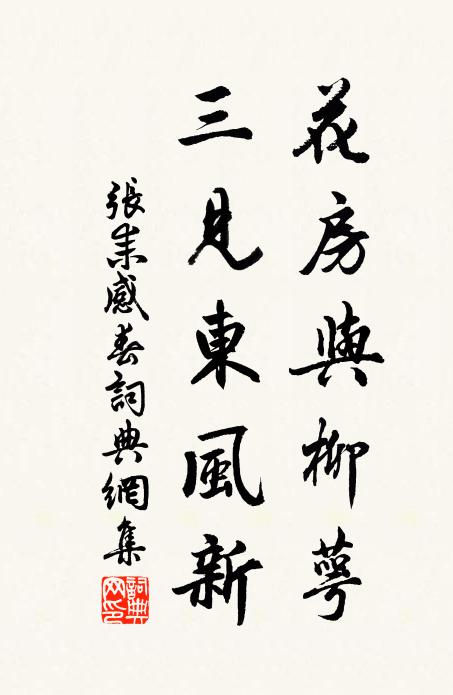 花房與柳萼
三見東風新
張耒感春詞典網集
詞典網印